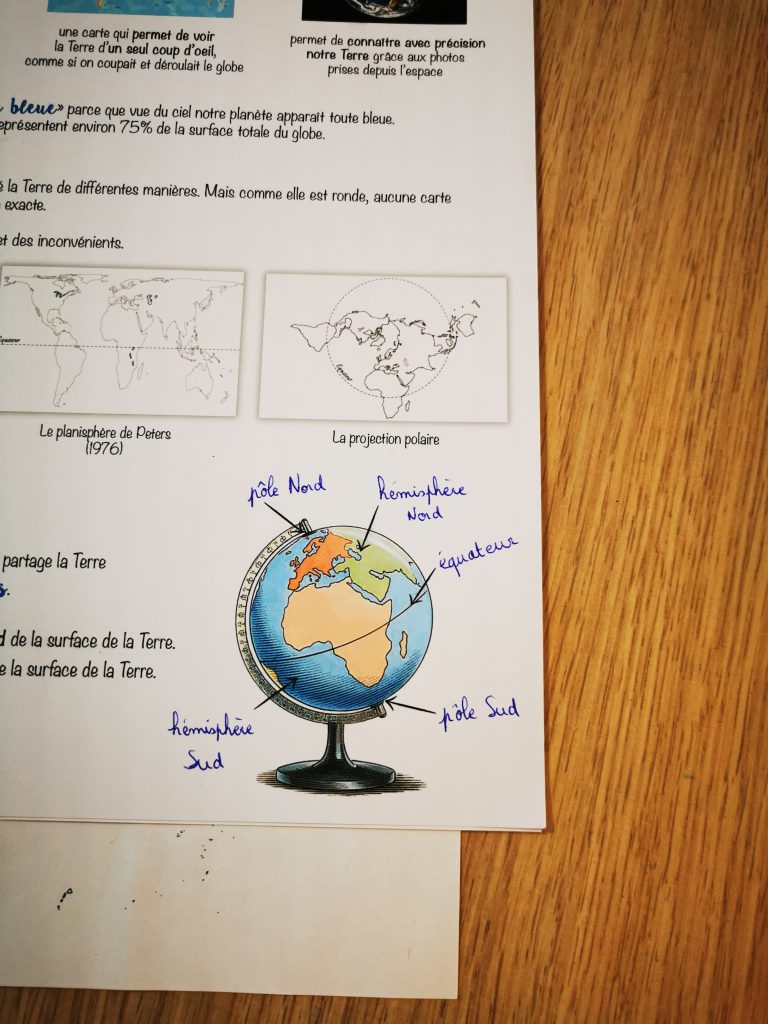 une carte qui permet de voir
la Terre d'un seul coup d'oeil,
comme si on coupait et déroulait le globe
permet de connaître avec précision
notre Terre grâce aux photos
prises depuis l'espace
bleue» parce que vue du ciel notre planète apparaît toute bleue.
représentent environ 75% de la surface totale du globe.
la Terre de différentes manières. Mais comme elle est ronde, aucune carte
exacte.
et des inconvénients.
Équateur
Équateur
Le planisphère de Peters
(1976)
La projection polaire
pôle Nord
hémisphère
Nord
équateur
partage la Terre
de la surface de la Terre.
la surface de la Terre.
hémisphère
Sud
pôle Sud